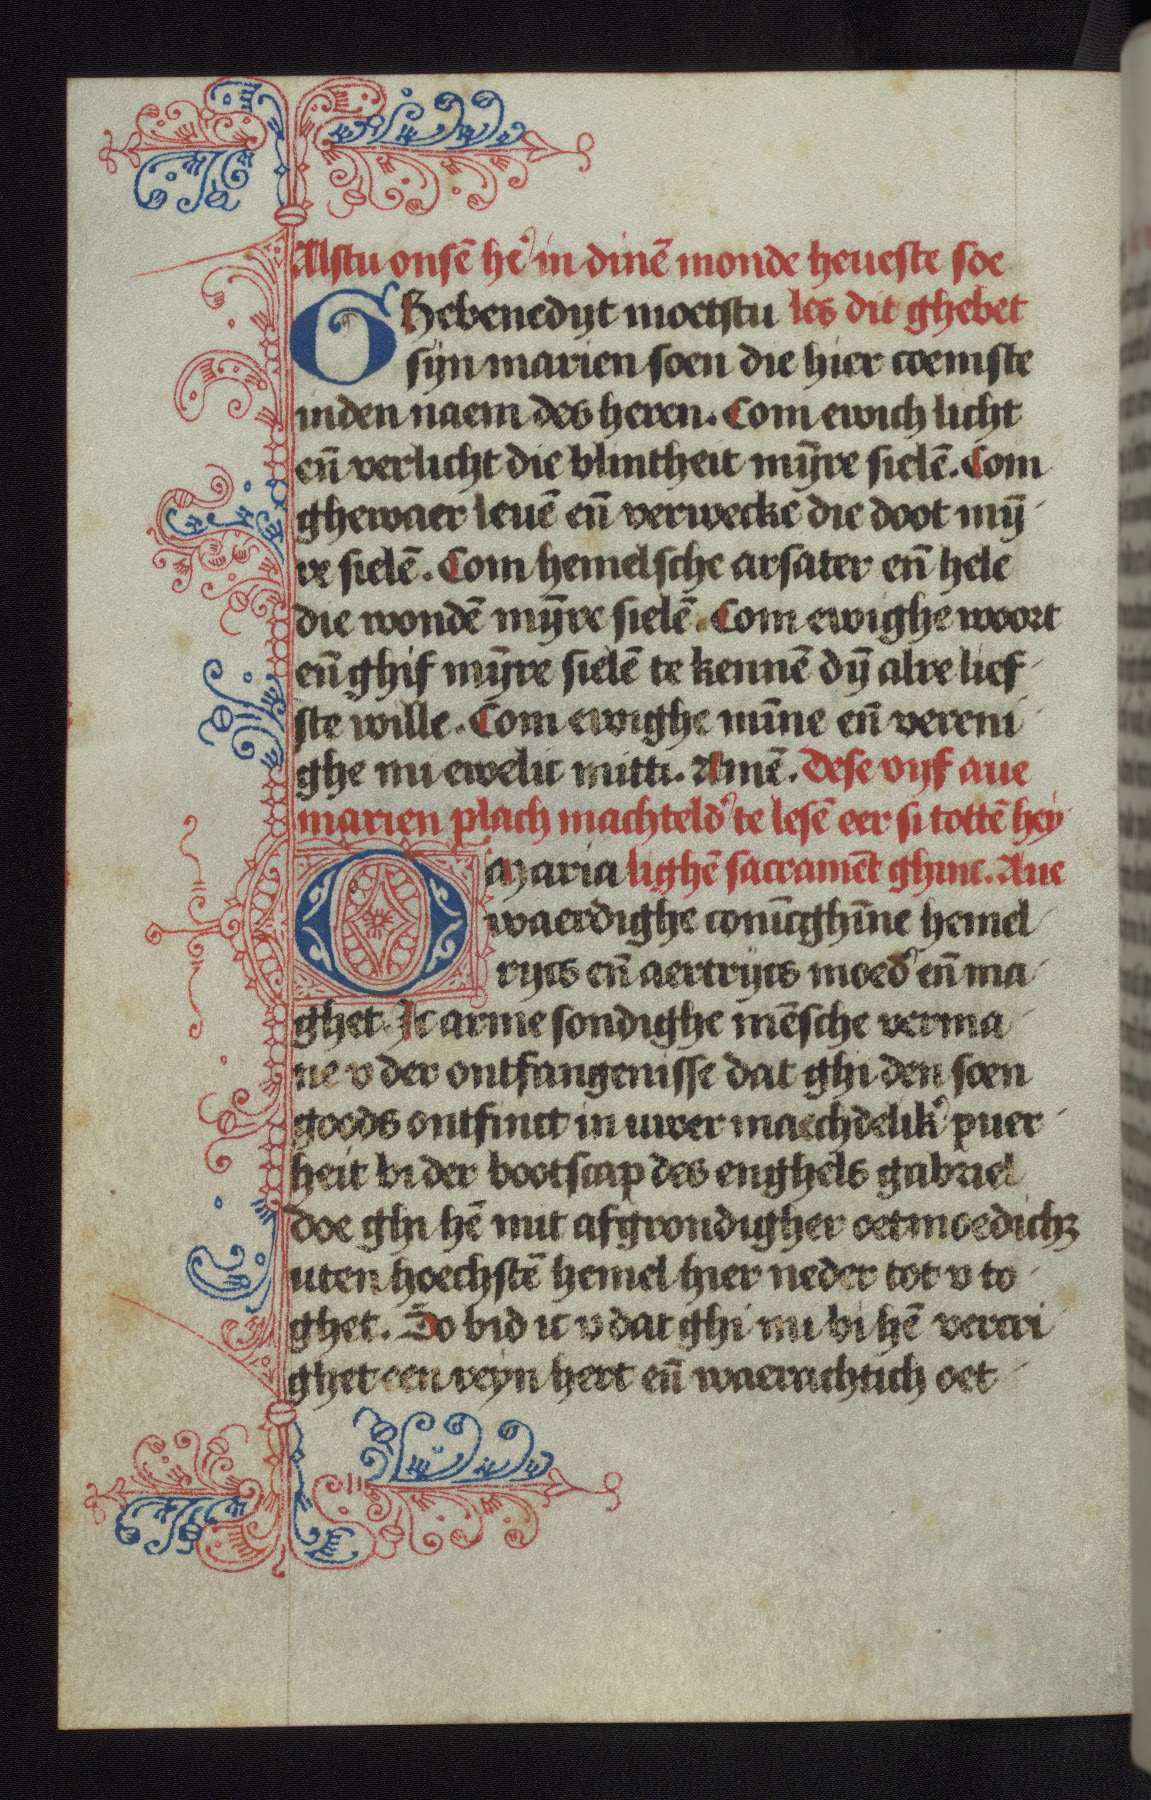 Alstu onsē hē in dinē monde heueste soe
GHebenedijt moetstu les dit ghebet
sijn marien soen die hier coemste
inden naem des heren. Com ewich licht
eñ verlicht die blintheit mȳre sielē. Com
ghewaer leuē eñ verweckē die doot mȳ
re sielē. Com hemelsche arsater eñ hele
die wondē mȳre sielē. Com ewighe woort
eñ ghif mȳre sielē te kennē dȳ alre lief
ste wille. Com ewighe mīne eñ vereni
ghe mi ewelic mitti. Amē. Dese vijf aue
marien plach machteld' te lesē eer si tottē hey
O Maria lighē sacramēt ghinc. Aue
waerdighe conīcghīne hemel
rijcs eñ aertrijcs moed' eñ ma
ghet. Ic arme sondighe mēsche verma
ne v der ontfangenisse dat ghi den soen
goods ontfinct in uwer maechdelik' puer
heit bi der bootscap des enghels gabriel
doe ghi hē mit afgrondigher oetmoedichꝫ
uten hoechstē hemel hier neder tot v to
ghet. So bid ic v dat ghi mi bi hē vercri
ghet een reyn hert eñ waerachtich oet